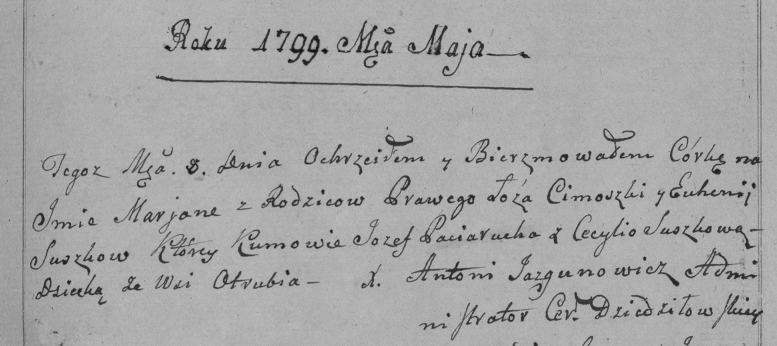 Roku 1799. Mca Maja
Tegoz Mca. 8. Dnia Ochrzciłem y Bierzmowałem Córkę na
Imie Marjanę z Rodzicow Prawego Łoża Cimoszki y Euhenij
Suszkow Którey Kumowie Jozef Paciarucha z Cecylio Suszkową
Dziecką ze Wsi Otrubia — X. Antoni Jazgunowicz Admi
nistrator Cer. Dziedziłowskiey